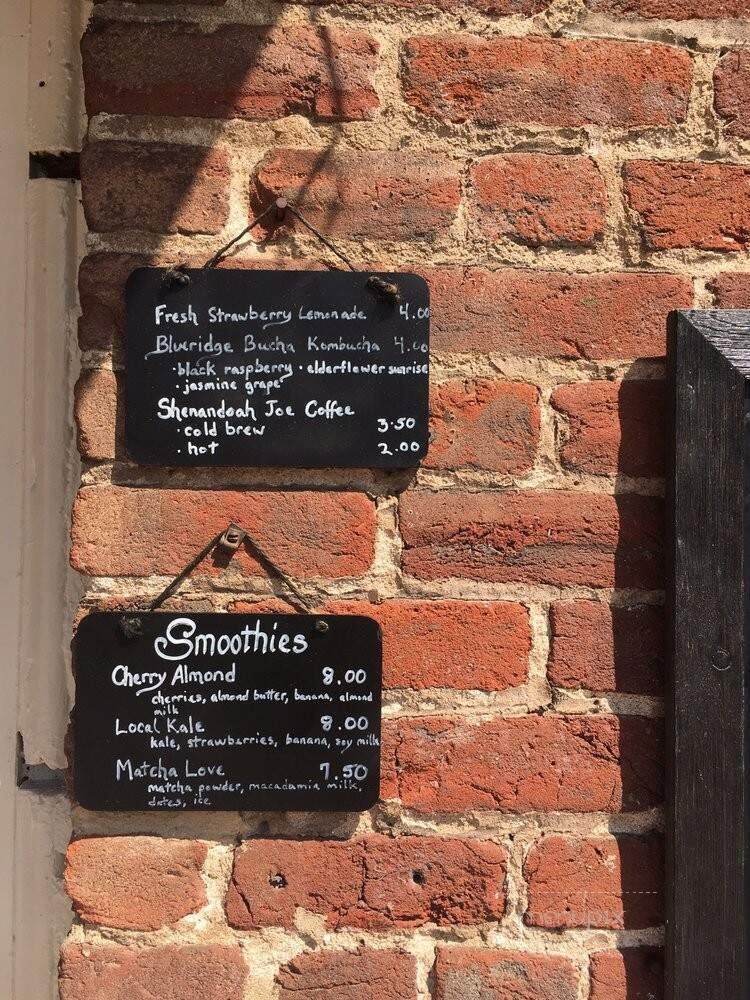 Fresh Strawberry Lemonade 4.00
Blueridge Bucha Kombucha 4.00
·black raspberry ·elderflower sunrise
·jasmine grape
Shenandoah Joe Coffee
·cold brew 3.50
·hot 2.00
Smoothies
Cherry Almond 8.00
cherries, almond butter, banana, almond
milk
Local Kale 8.00
kale, strawberries, banana, soy milk
Matcha Love 7.50
matcha powder, macadamia milk,
dates, ice
menupix